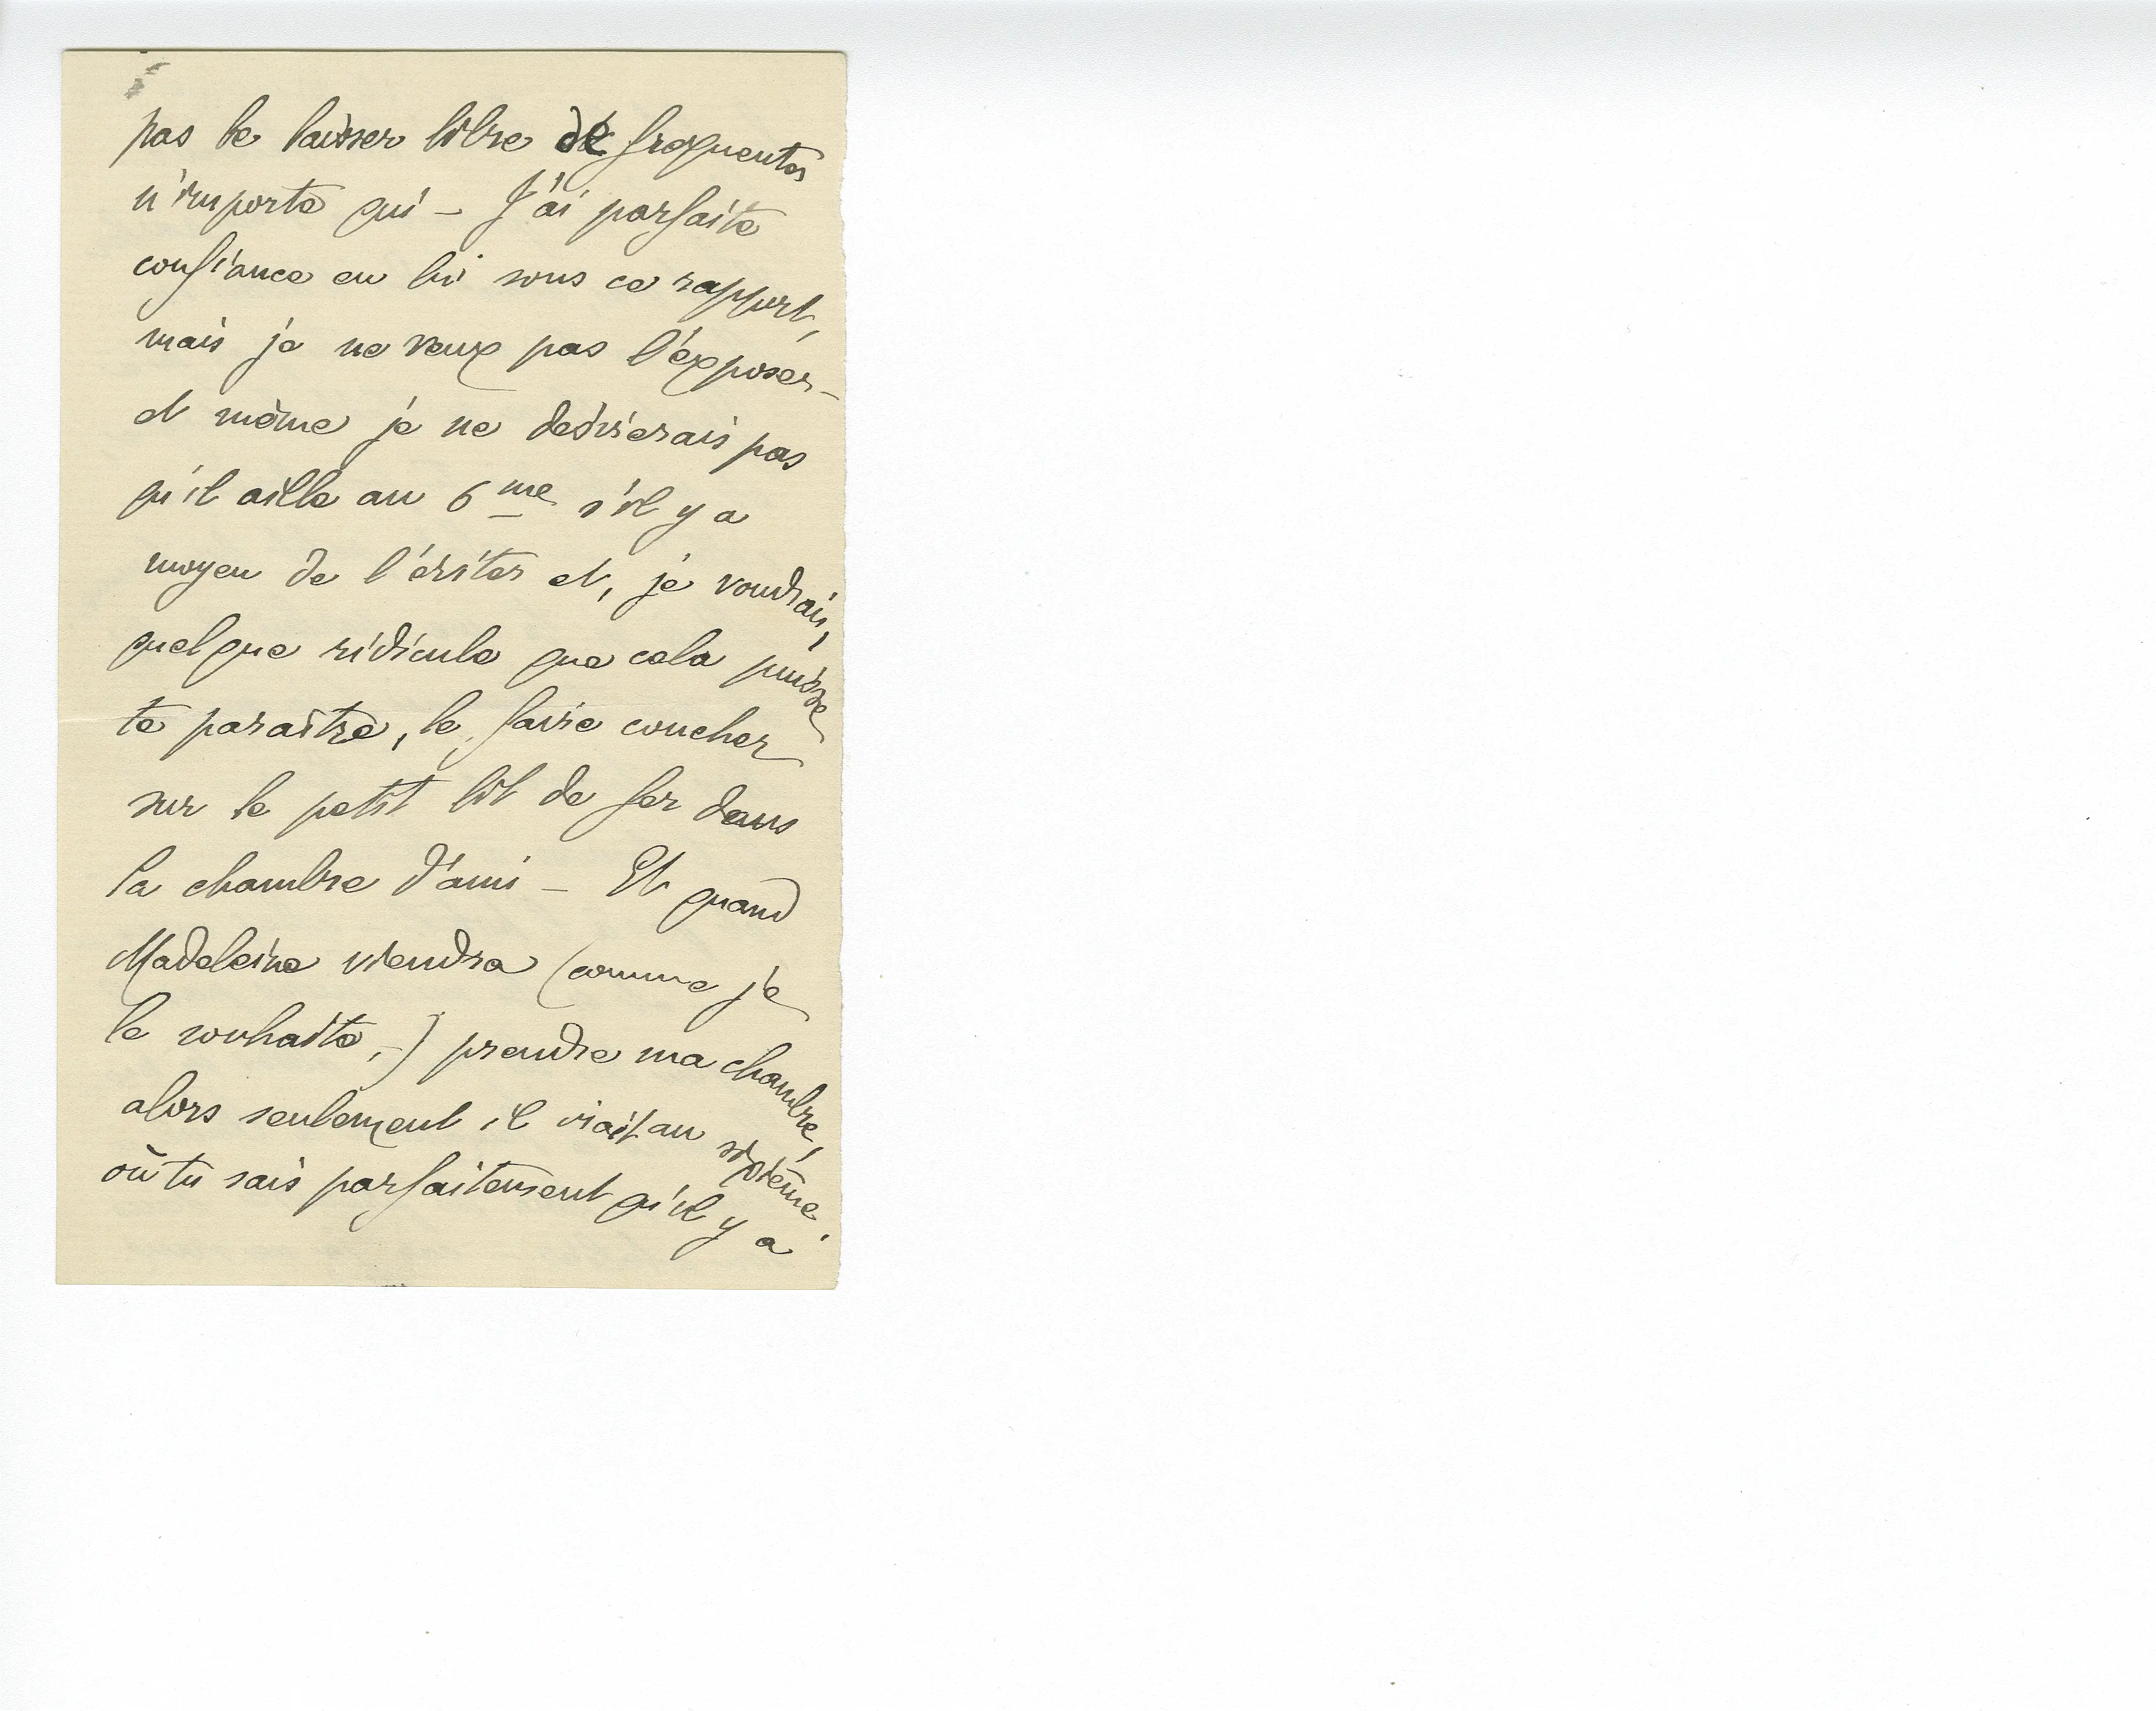 pas le laisser libre de frequenter
n'importe qui – J'ai parfaite
confiance en lui sous ce rapport,
mais je ne veux pas l'exposer –
et même je ne désirerais pas
qu'il aille au 6me s'il y a
moyen de l'éviter et, je voudrais,
quelque ridicule que cela puisse
te paraître, le faire coucher
sur le petit lit de fer dans
la chambre d'ami – Et quand
Madeleine viendra (comme je
le souhaite,–) prendre ma chambre,
alors seulement il irait au sixième,
où tu sais parfaitement qu'il y a